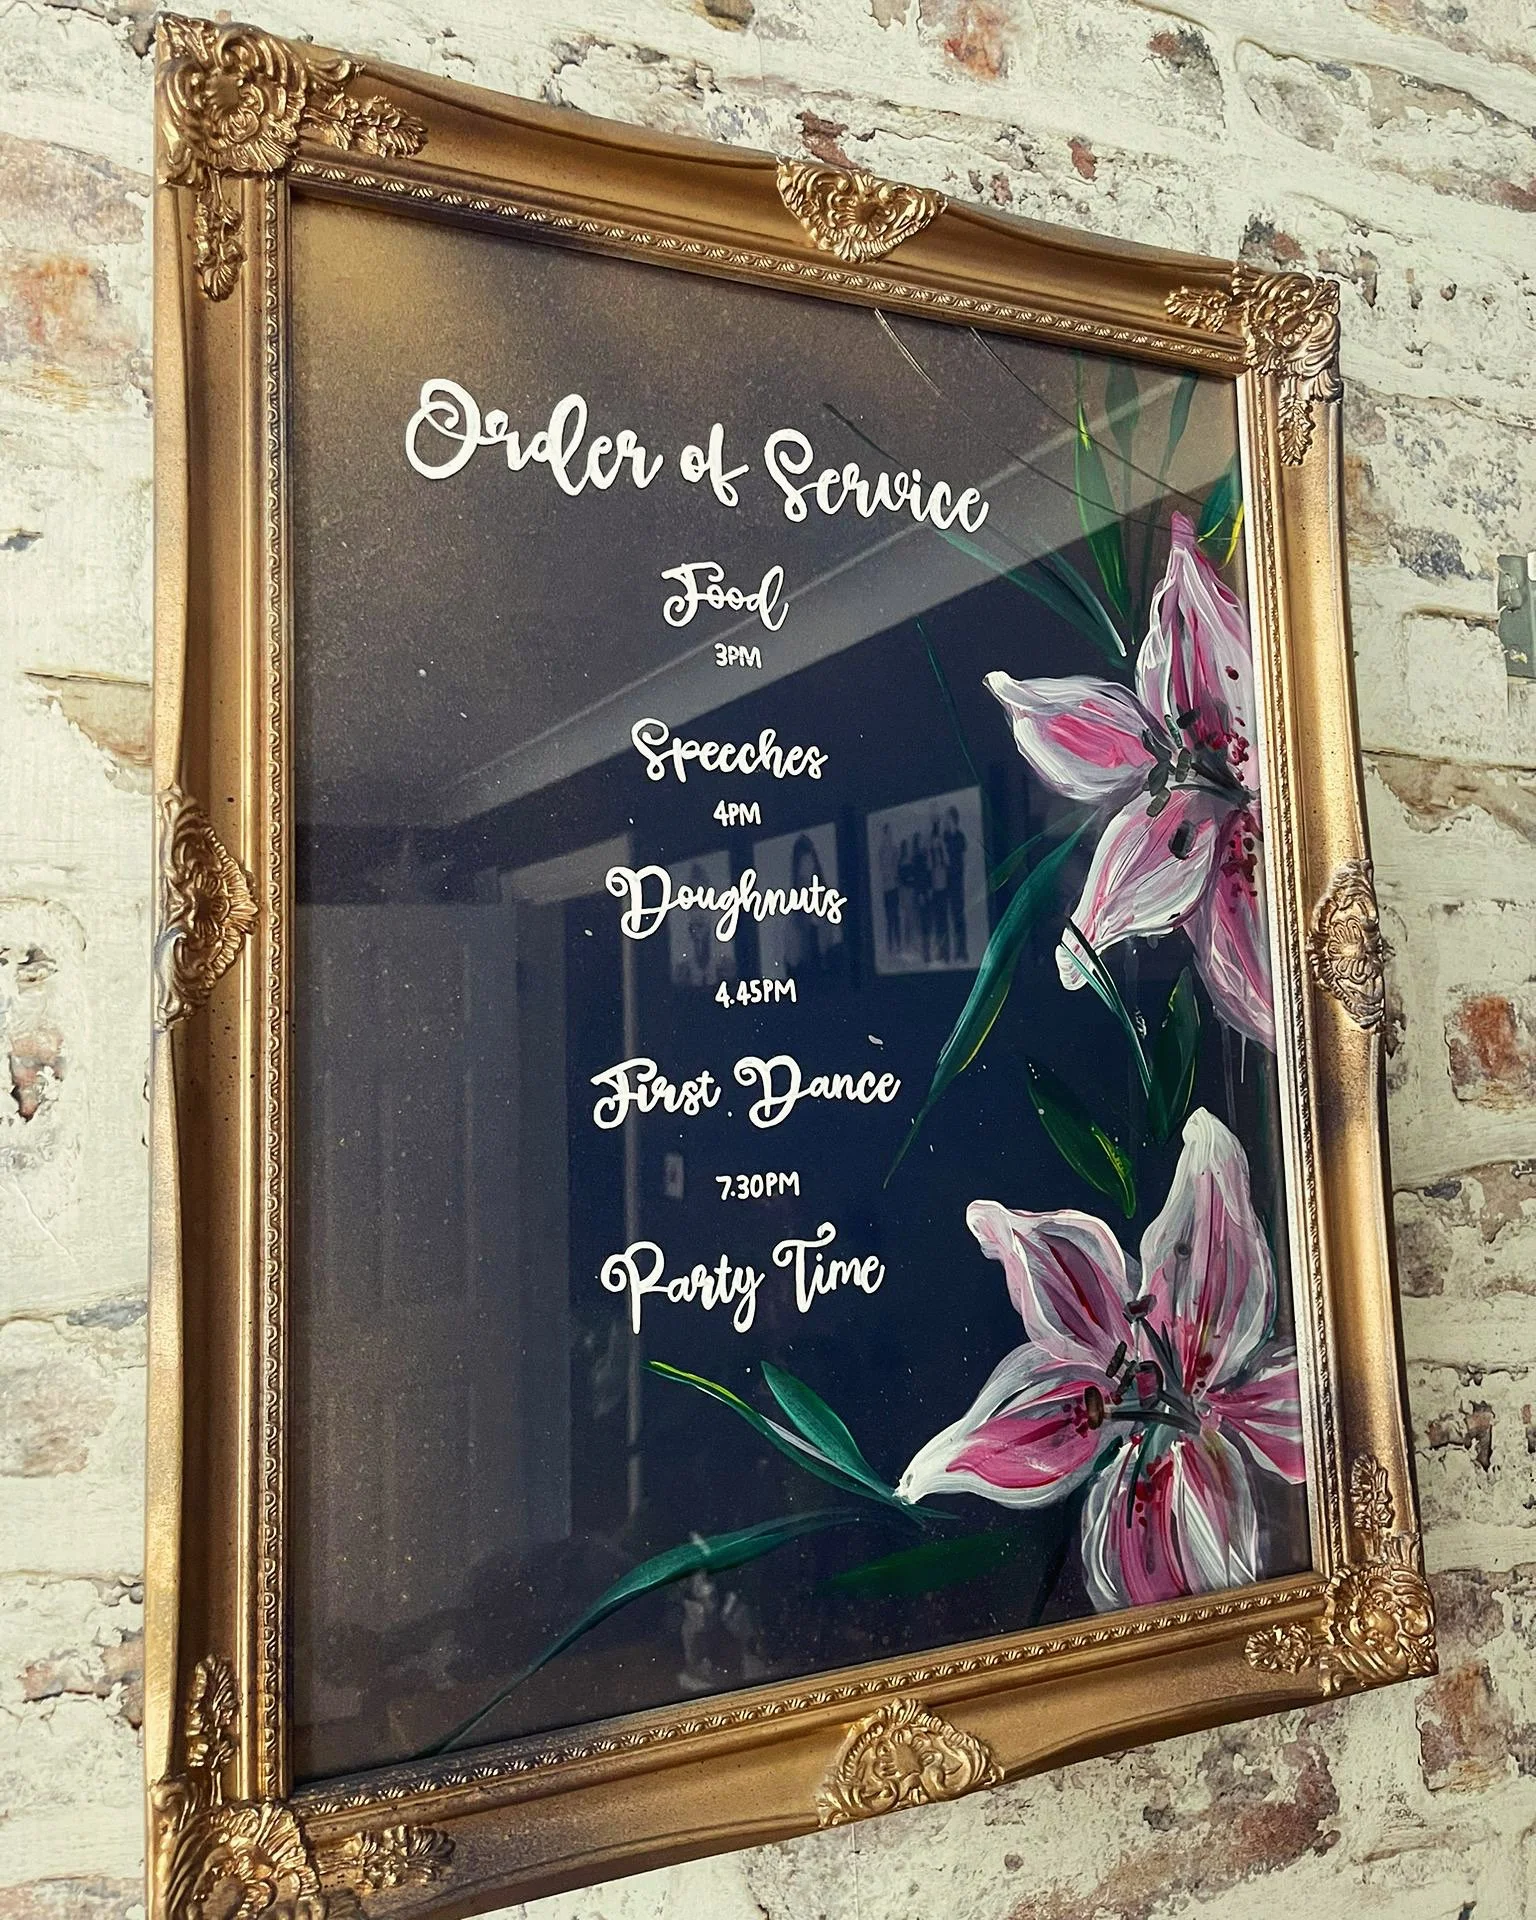 Order of Service
Food
3PM
Speeches
4PM
Doughnuts
4.45PM
First Dance
7.30PM
Party Time